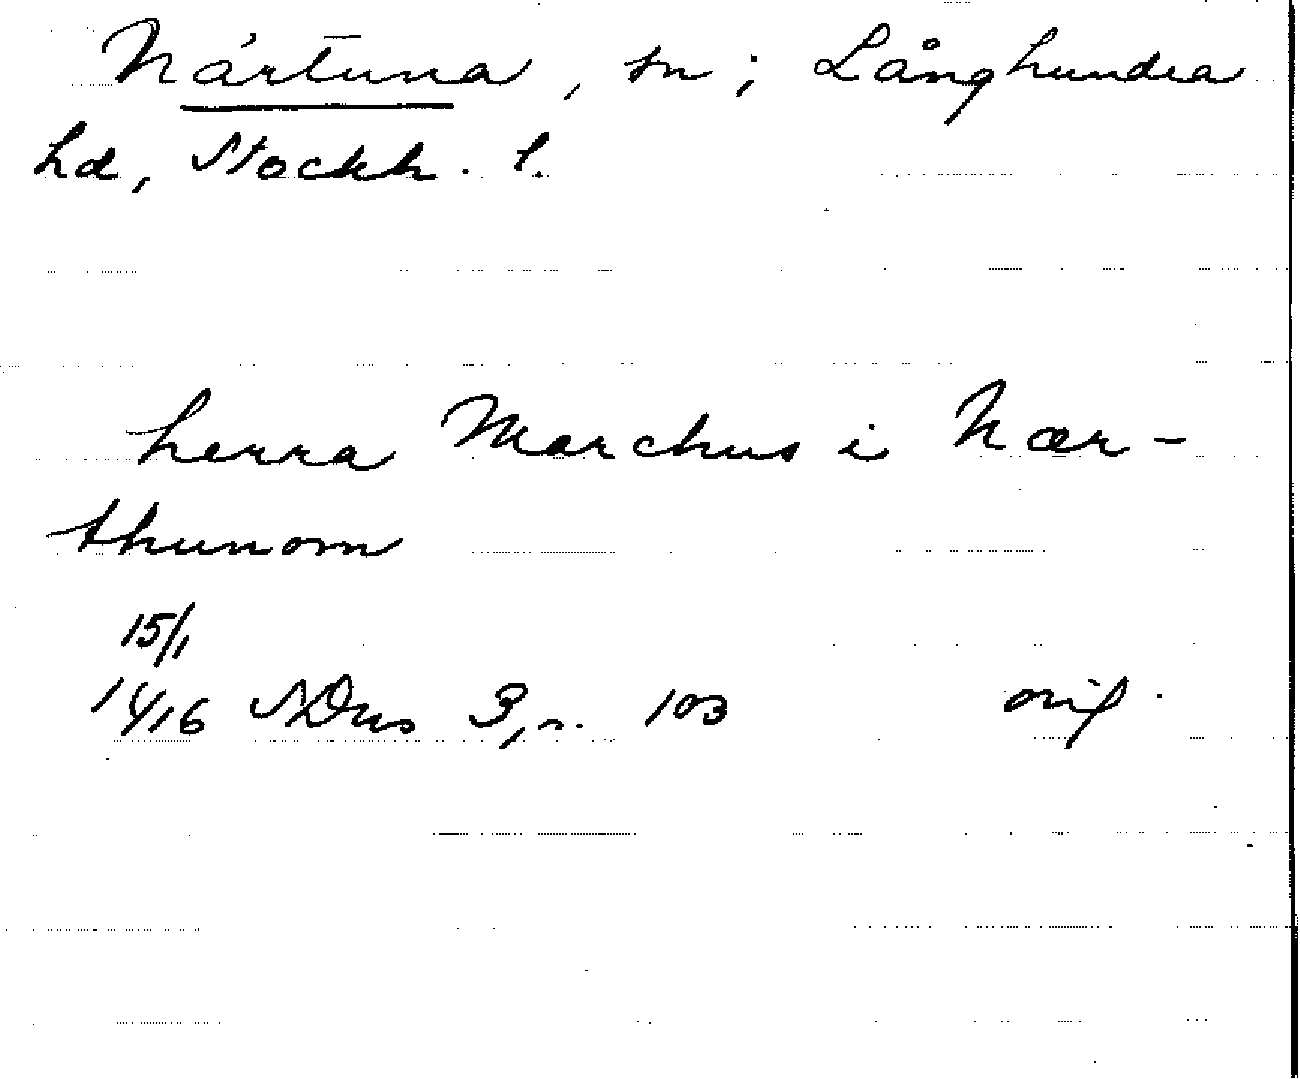 Närtuna, sn; Långhundra
hd, Stockh. l.
herra Marchus i Nær-
thunom
15/1
1416 SDns 3, s. 103 orig.